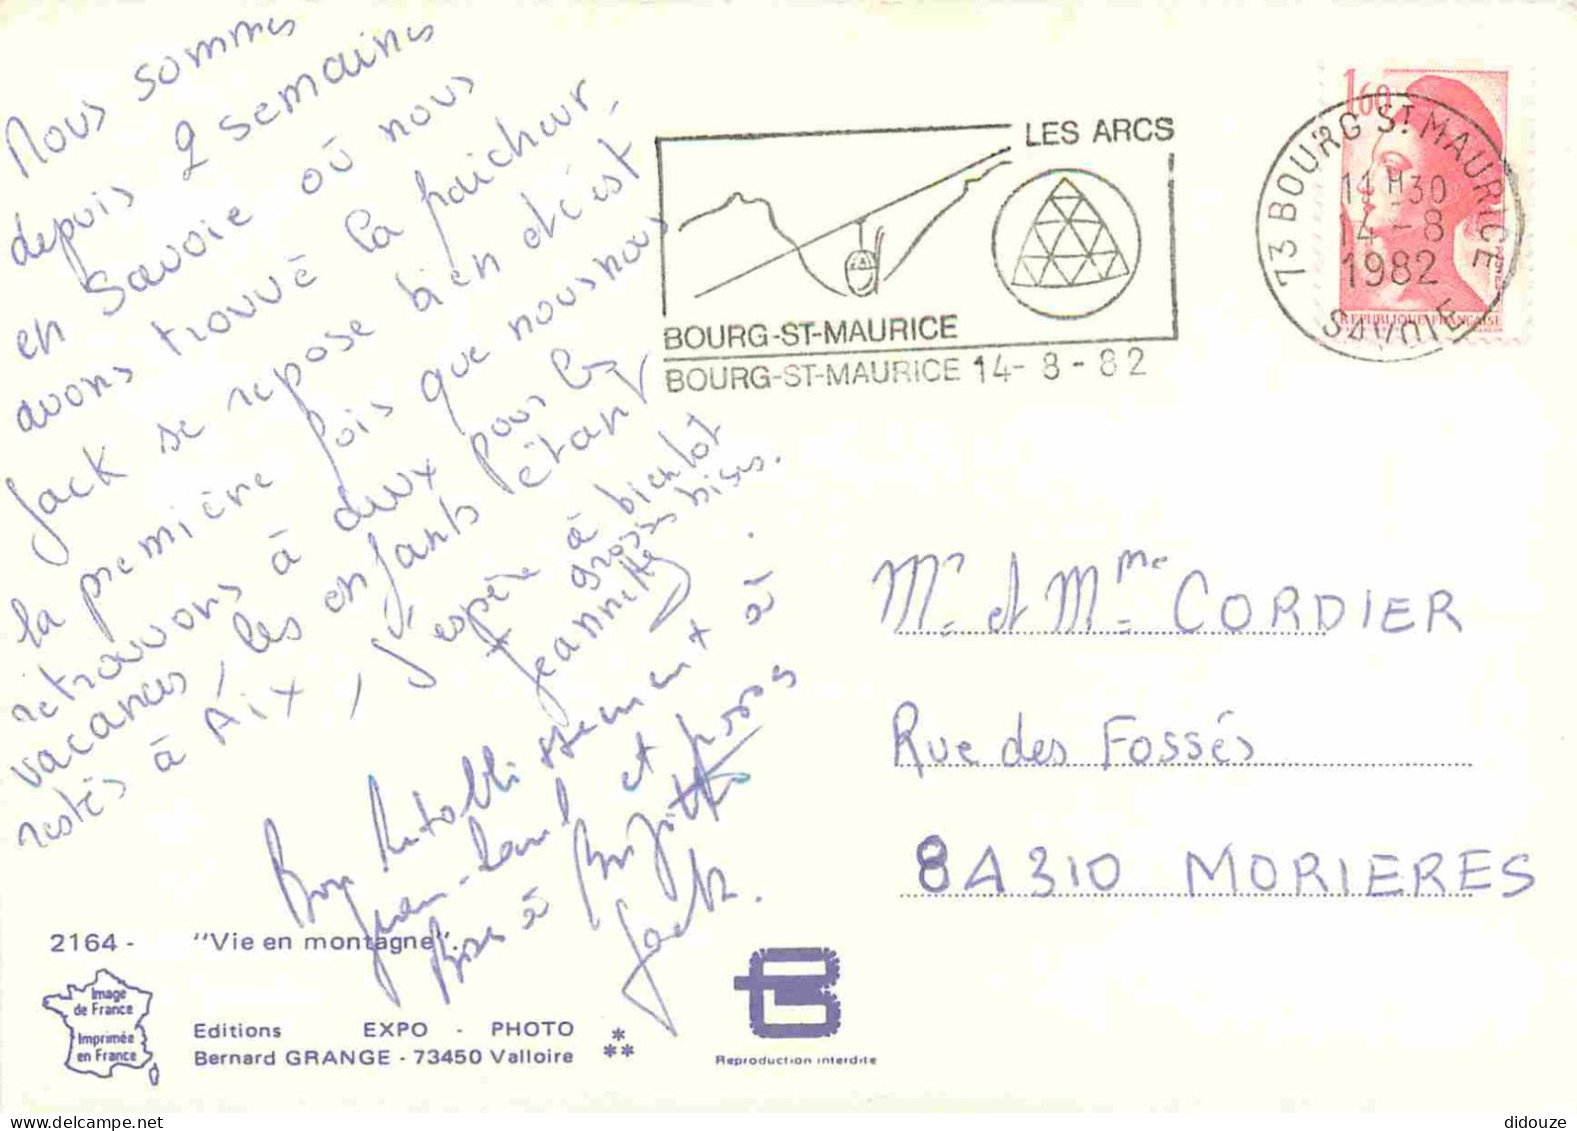 Nous sommes
depuis 2 semaines
en Savoie où nous
avons trouvé la fraicheur,
Jack se repose bien et c'est
la première fois que nous nous
retrouvons à deux pour les
vacances, les enfants étant
restés à Aix, J'espère à bientôt
grosses bises.
Jeannette
Bon Rétablissement à
Jean-Paul et grosses
Bises à Brigitte
Jack.
LES ARCS
BOURG-ST-MAURICE
BOURG-ST-MAURICE 14-8-82
1,60
REPUBLIQUE FRANCAISE
73 BOURG ST MAURICE
14H30
14-8
1982
SAVOIE
Mr. et Mme CORDIER
Rue des Fossés
84310 MORIERES
2164 - "Vie en montagne".
Image
de France
Imprimée
en France
Editions EXPO - PHOTO
Bernard GRANGE - 73450 Valloire
Reproduction interdite
didouze